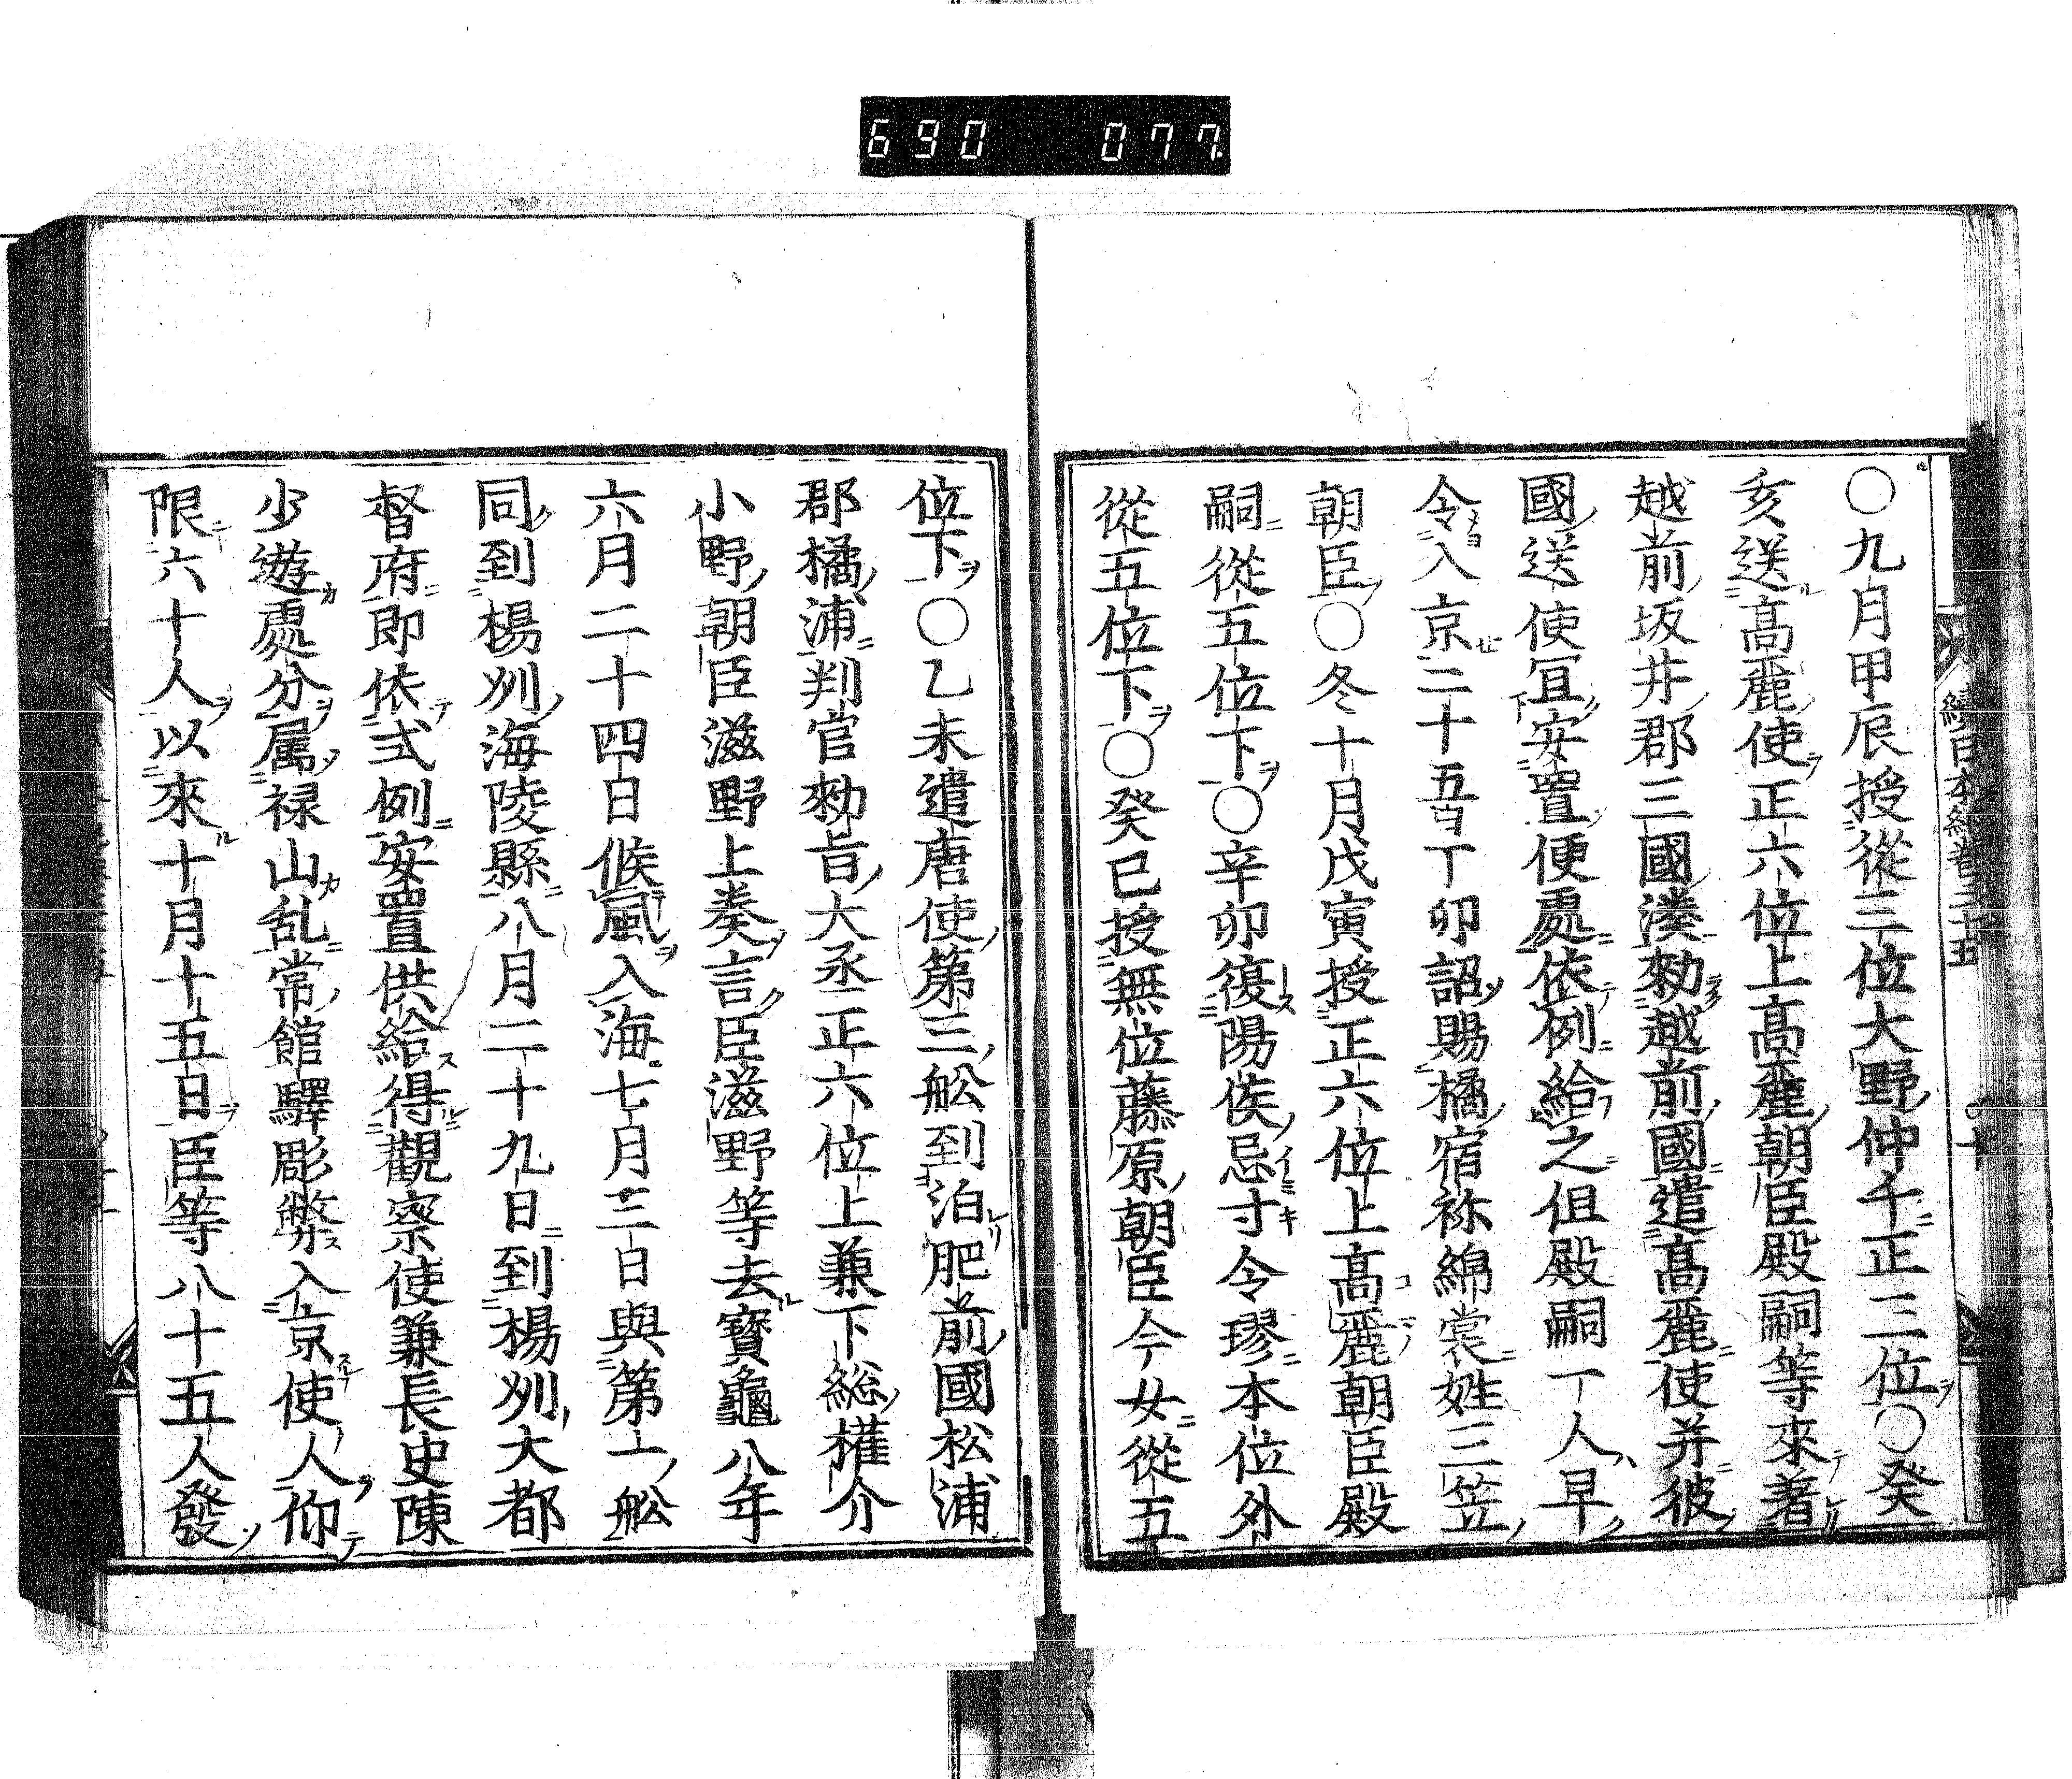 690 077
〇九月甲辰授從三位大野仲千正三位〇癸
亥送髙麗使正六位上髙麗朝臣殿嗣等來著
越前坂井郡三國湊勑越前國遣髙麗使并彼
國送使冝安置便處依例給之但殿嗣一人早
令入京二十五百丁卯詔賜橘宿祢綿裳姓三笠
朝臣〇冬十月戊寅授正六位上髙麗朝臣殿
嗣從五位下〇辛卯復陽侯忌寸令璆本位外
從五位下〇癸巳授無位藤原朝臣今女從五
續日本紀卷三十五
位下〇乙未遣唐使第三舩到泊肥前國松浦
郡橘浦判官勑旨大丞正六位上兼下総權介
小野朝臣滋野上奏言臣滋野等去寶龜八年
六月二十四日候風入海七月三日與第一舩
同到楊州海陵縣八月二十九日到楊州大都
督府即依式例安置供給得觀察使兼長史陳
少遊處分属禄山乱常館驛彫弊入京使人仰
限六十人以來十月十五日臣等八十五人發